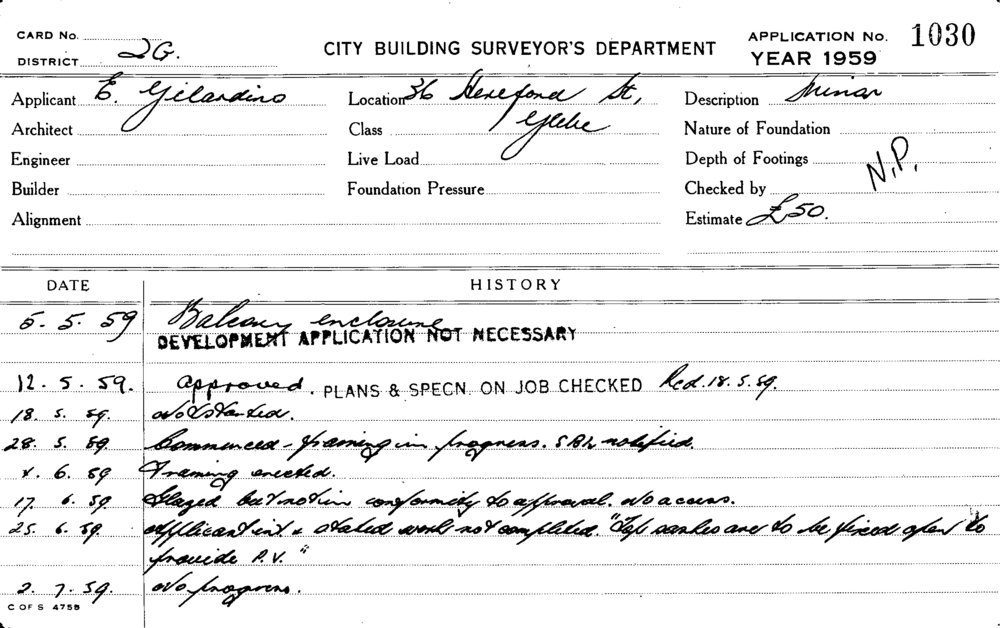 CARD No.
DISTRICT 2G.
CITY BUILDING SURVEYOR'S DEPARTMENT
APPLICATION No. 1030
YEAR 1959
Applicant E. Gilardino
Location 36 Hereford St,
Description Minor
Architect
Class Glebe
Nature of Foundation
Engineer
Live Load
Depth of Footings N.P.
Builder
Foundation Pressure
Checked by
Alignment
Estimate £50.
DATE HISTORY
5. 5. 59 Balcony enclosure
DEVELOPMENT APPLICATION NOT NECESSARY
12. 5. 59. Approved. PLANS & SPECN. ON JOB CHECKED Red. 18. 5. 59.
18. 5. 59. Not started.
28. 5. 59 Commenced - framing in progress. notified.
6. 59 Framing erected.
17. 6. 59 Glazed but not in conformity to approval. No access.
25. 6. 59. Applicant int. & stated work not completed. "Top sashes are to be fixed open to
provide P.V."
2. 7. 59. No progress.
C OF S 4758